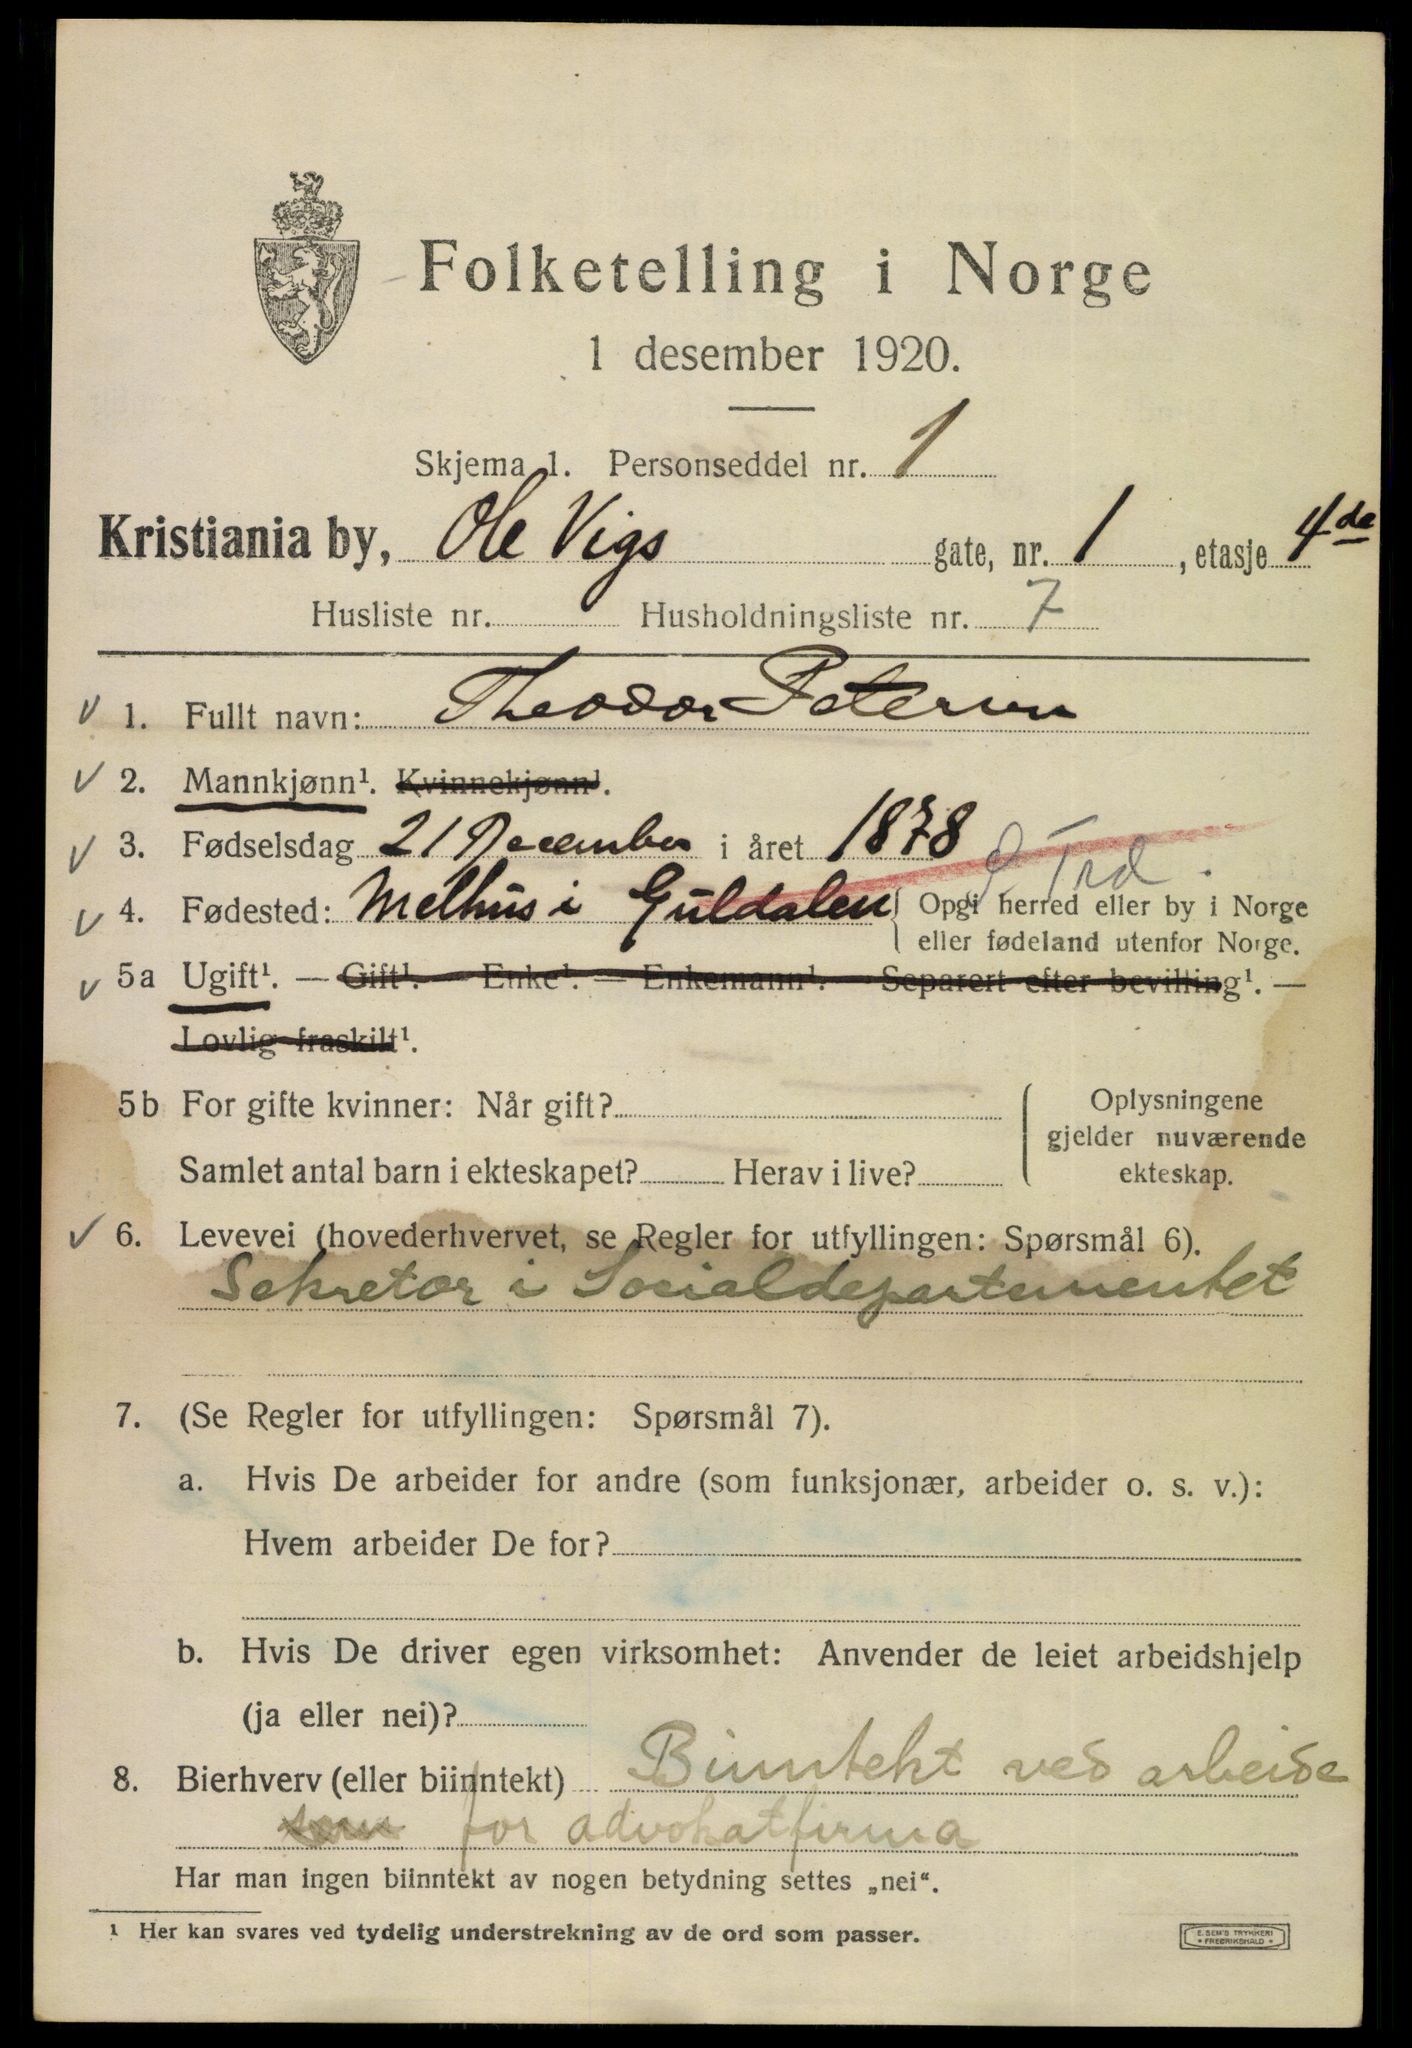 Folketelling i Norge
1 desember 1920.
Skjema 1. Personseddel nr. 1
Kristiania by, Ole Vigs gate, nr. 1, etasje 4de
Husliste nr. Husholdningsliste nr. 7
v 1. Fullt navn: Theodor Petersen
v 2. Mannkjønn¹. Kvinnekjønn¹.
v 3. Fødselsdag 21 December i året 1878
S. Trd.
v 4. Fødested: Melhus i Guldalen { Opgi herred eller by i Norge
eller fødeland utenfor Norge.
v 5a Ugift¹. — Gift¹. — Enke¹. — Enkemann¹. — Separert efter bevilling¹. —
Lovlig fraskilt¹.
5b For gifte kvinner: Når gift? { Oplysningene
gjelder nuværende
Samlet antal barn i ekteskapet? Herav i live? ekteskap.
v 6. Levevei (hovederhvervet, se Regler for utfyllingen: Spørsmål 6).
Sekretær i Socialdepartementet
7. (Se Regler for utfyllingen: Spørsmål 7).
a. Hvis De arbeider for andre (som funksjonær, arbeider o. s. v.):
Hvem arbeider De for?
b. Hvis De driver egen virksomhet: Anvender de leiet arbeidshjelp
(ja eller nei)?
8. Bierhverv (eller biinntekt) Biinntekt ved arbeide
som for advokatfirma
Har man ingen biinntekt av nogen betydning settes „nei“.
¹ Her kan svares ved tydelig understrekning av de ord som passer.
E. SEM'S TRYKKERI
• FREDRIKSHALD •